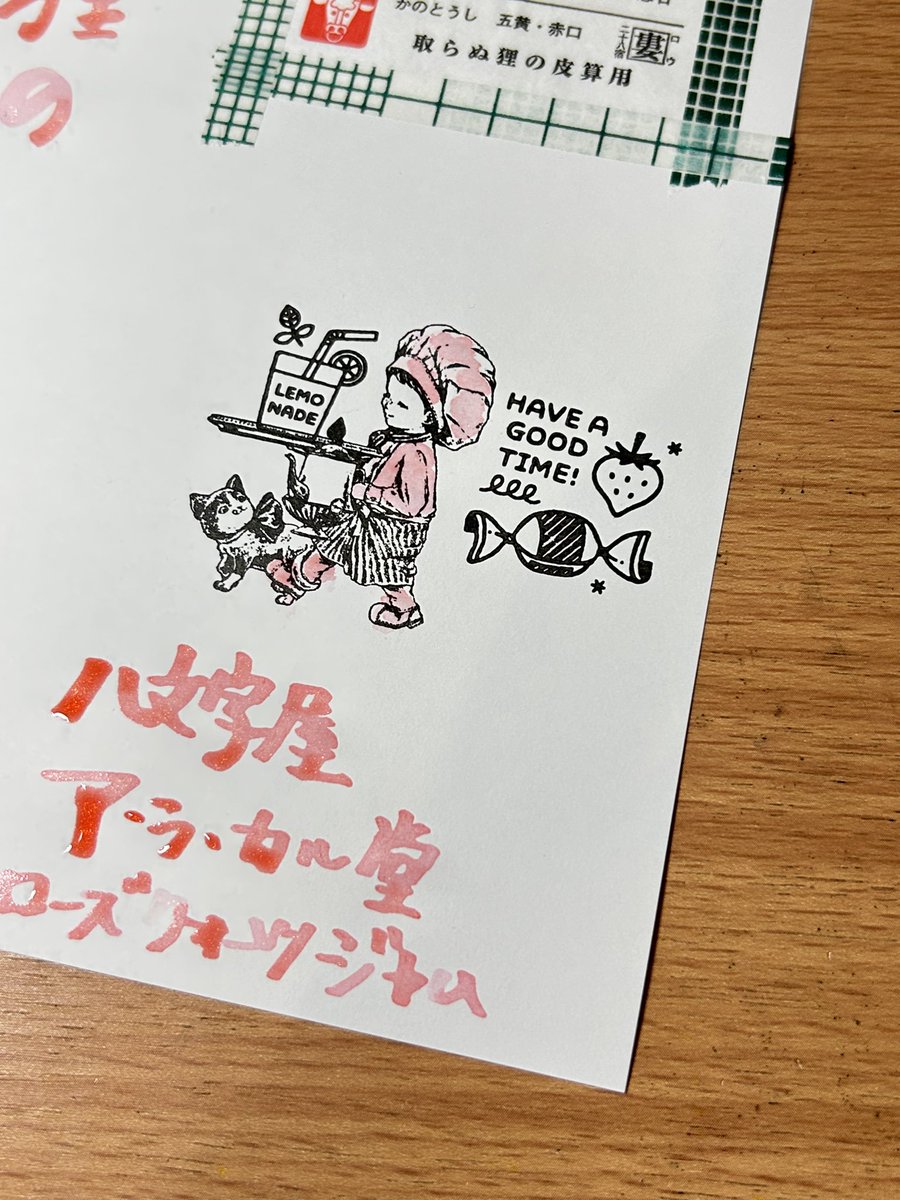 かのとうし 五黄・赤口 二十八宿 婁 ロウ
取らぬ狸の皮算用
の
LEMO
NADE
HAVE A
GOOD
TIME!
八文字屋
アーラ・カル堂
ローズクォーツジャム